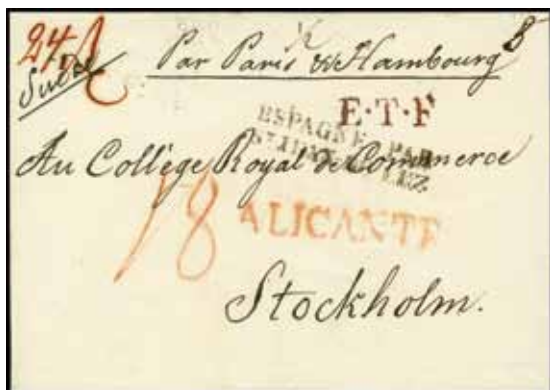 24
Suède
Par Paris & Hambourg
8
E·T·F
ESPAGNE PAR
ST JEAN DE LUZ
Au Collège Royal de Commerce
18
ALICANTE
Stockholm.